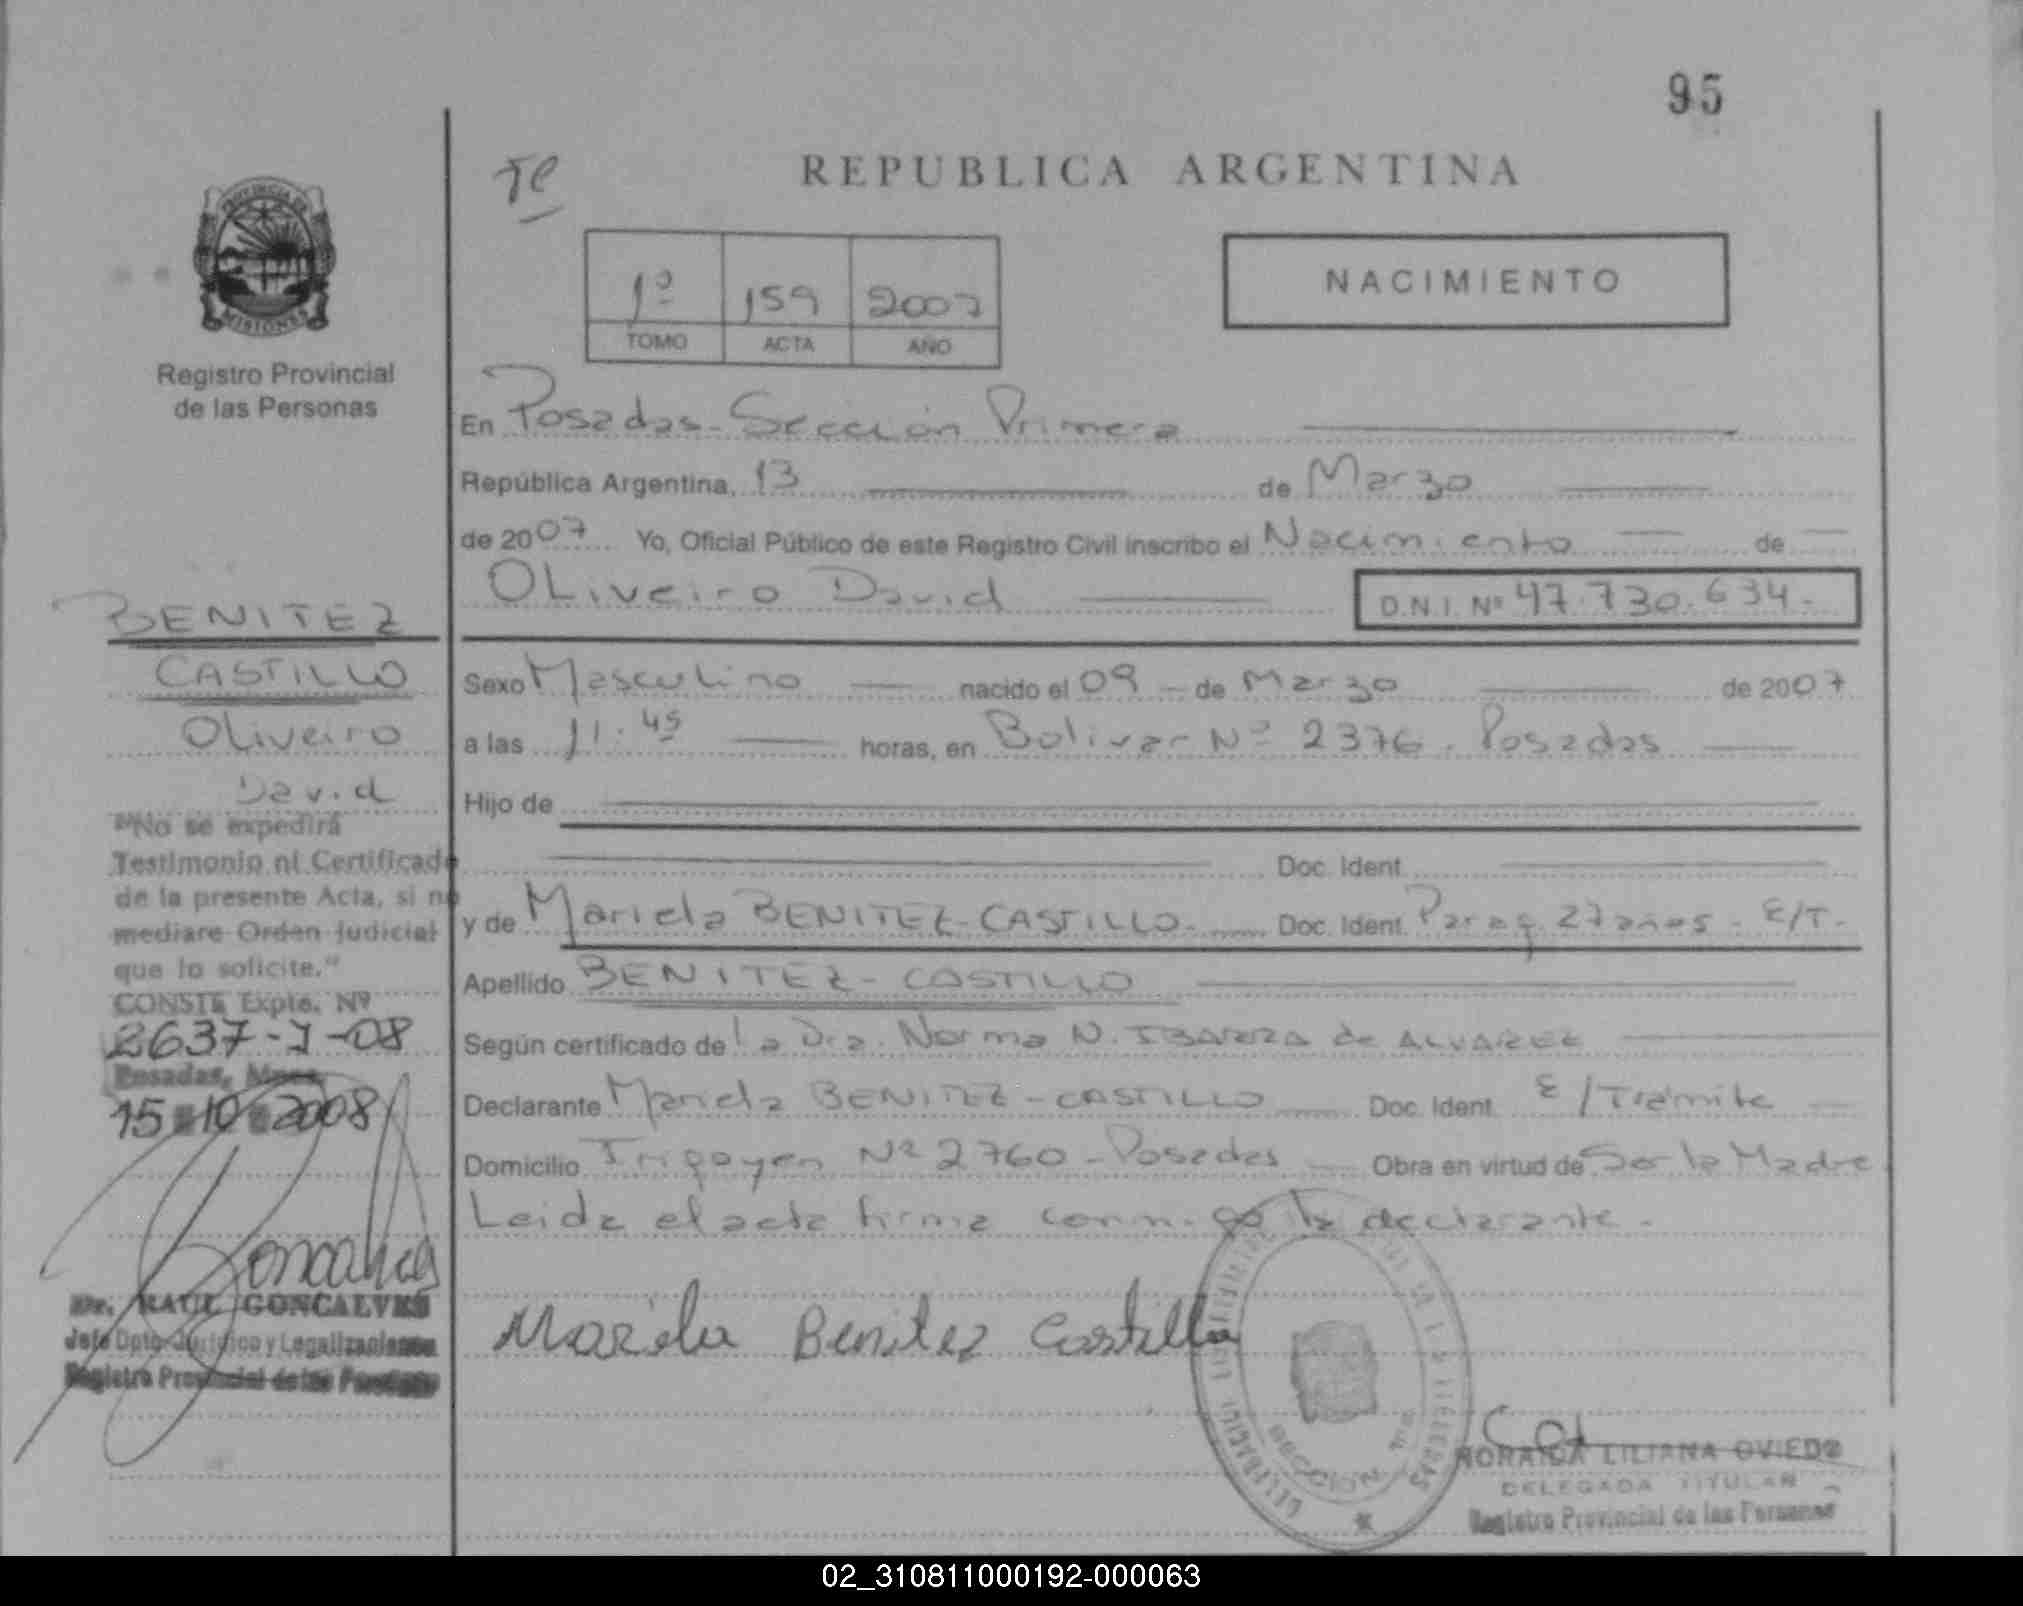 95
REPUBLICA ARGENTINA
PROVINCIA DE
MISIONES
Registro Provincial
de las Personas
1º 159 2007
TOMO ACTA AÑO
NACIMIENTO
En Posadas-Sección Primera
República Argentina, 13 de Marzo
de 2007 Yo, Oficial Público de este Registro Civil inscribo el Nacimiento de
OLiveiro David D.N.I. Nº 47.730.634.-
BENITEZ
CASTILLO
OLiveiro
David
Sexo Masculino nacido el 09 de Marzo de 2007
a las 11.45 horas, en Bolivar Nº 2376. Posadas
Hijo de
Doc. Ident.
y de Mariela BENITEZ-CASTILLO. Doc. Ident. Parag. 27 años. E/T.
Apellido BENITEZ-CASTILLO
Según certificado de la Dra. Norma N. IBARRA de ALVAREZ
Declarante Mariela BENITEZ-CASTILLO Doc. Ident. E/Tramite
Domicilio Irigoyen Nº 2760-Posadas Obra en virtud de Ser la Madre
Leida el acta firma conmigo la declarante.
"No se expedirá
Testimonio ni Certificado
de la presente Acta, si no
mediare Orden Judicial
que lo solicite."
CONSTE Expte. Nº
2637-J-08
Posadas, Mnes.
15 10 2008
Goncalves
Dr. RAUL GONCALVES
Jefe Dpto. Jurídico y Legalizaciones
Registro Provincial de las Personas
Mariela Benitez Castillo
SECCION
LILIANA OVIEDO
DELEGADA TITULAR
Registro Provincial de las Personas
02_310811000192-000063